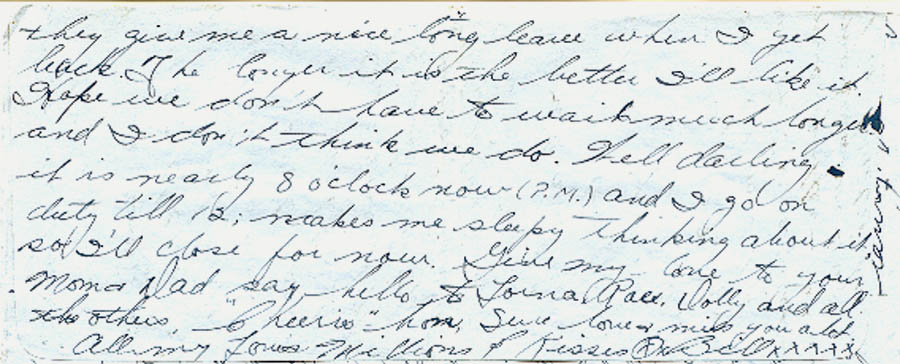 they give me a nice long leave when I get
back. The longer it is the better I'll like it.
Hope we don't have to wait much longer
and I don't think we do. Well darling
it is nearly 8 o'clock now (P.M.) and I go on
duty till 12; makes me sleepy thinking about it
so I'll close for now. Give my love to your
Mom & Dad say hello to Lorna, Dolly and all
the others, "Cheerio" hon, Sure love & miss you a lot
All my Love Millions of Kisses Bill xxxxx